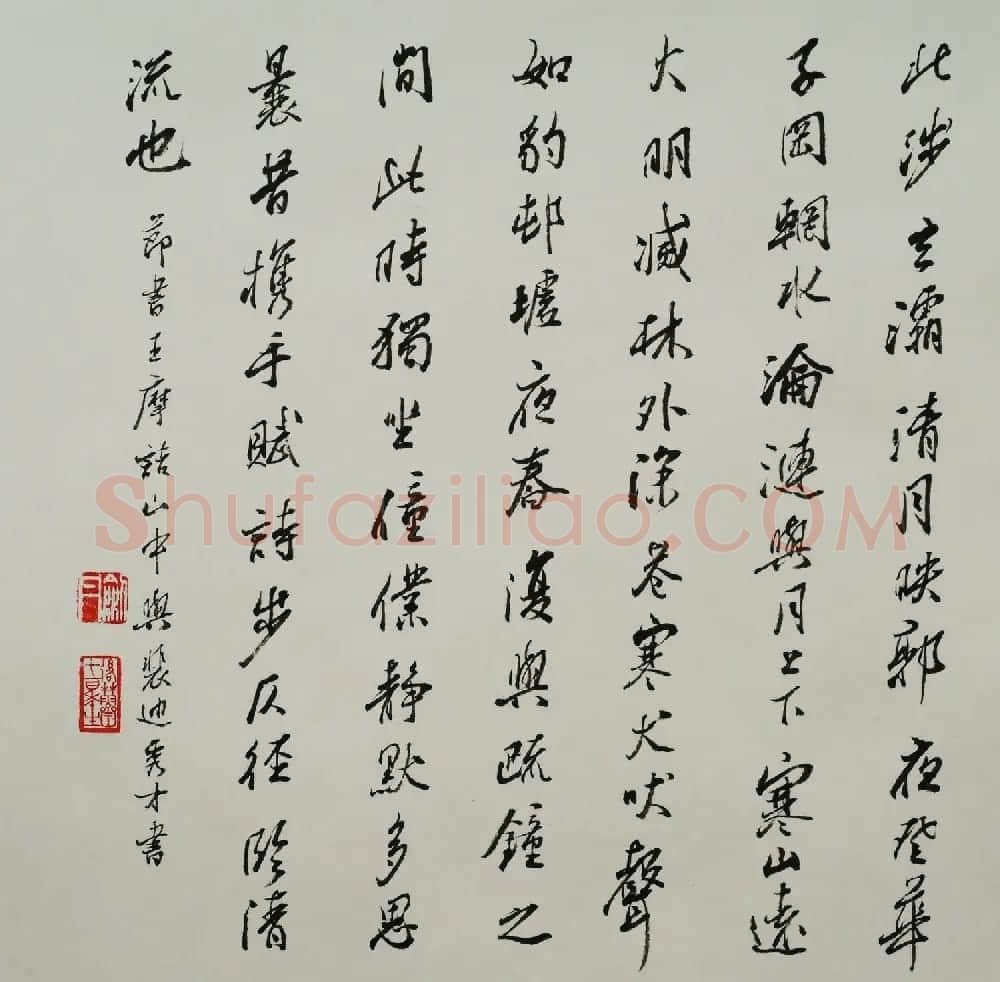 北涉玄灞清月映郭夜登華
子岡輞水淪漣與月上下寒山遠
火明滅林外深巷寒犬吠聲
如豹邨墟夜舂復與疏鐘之
間此時獨坐僮僕靜默多思
曩昔携手賦詩步仄徑臨清
流也
節書王摩詰山中與裴迪秀才書
Shufaziliao.COM